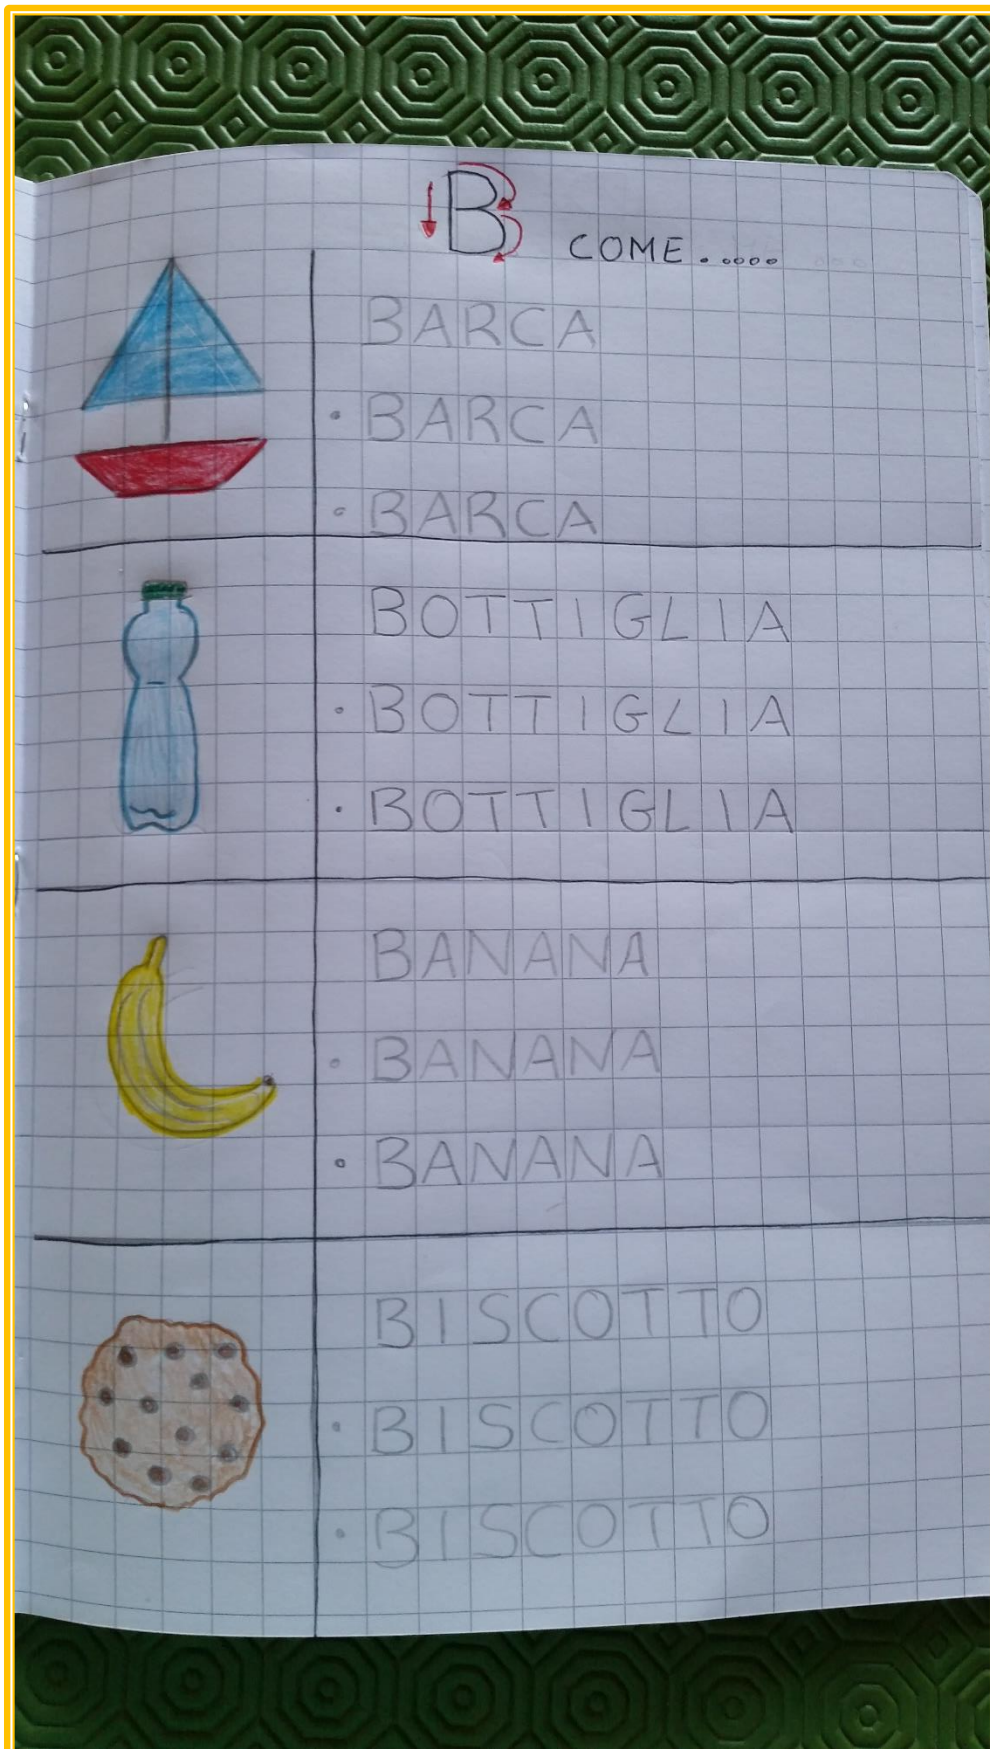 B COME.....
BARCA
• BARCA
• BARCA
BOTTIGLIA
• BOTTIGLIA
• BOTTIGLIA
BANANA
• BANANA
• BANANA
BISCOTTO
• BISCOTTO
• BISCOTTO